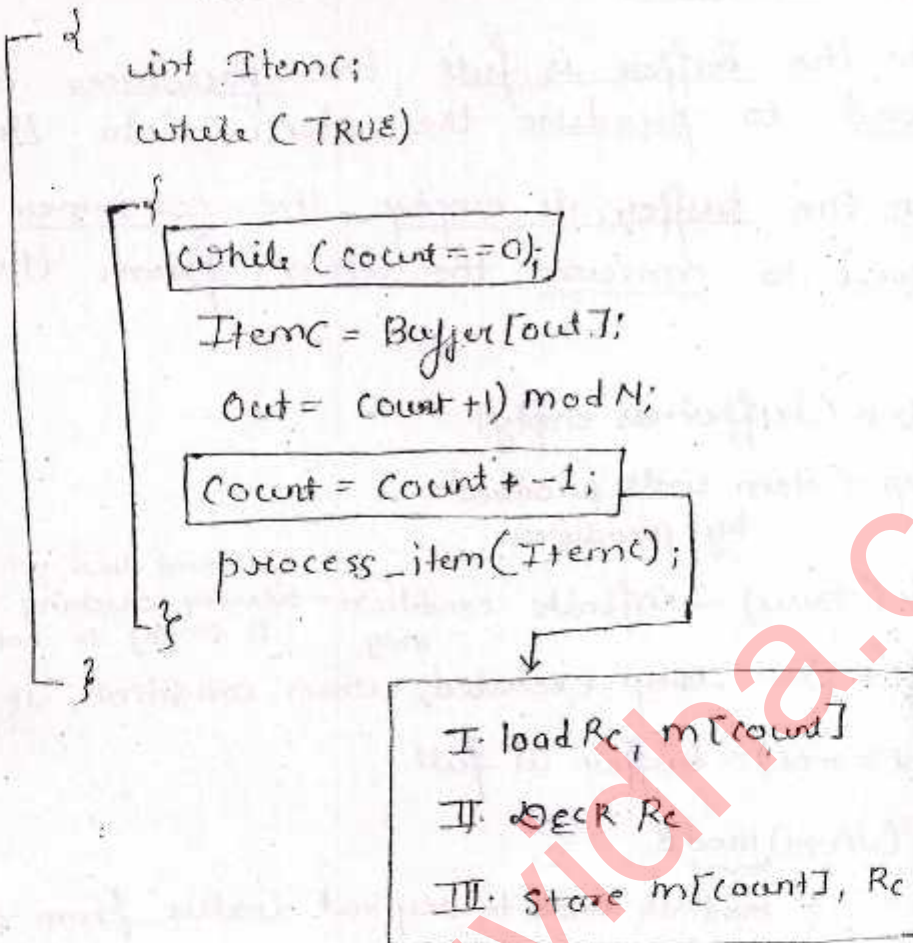 {
int Itemc;
while (TRUE)
{
while (count == 0);
ItemC = Buffer[out];
Out = count +1) mod N;
Count = Count + -1;
process_item(ItemC);
}
}
I. load Rc, m[count]
II. DECR Rc
III. Store m[count], Rc
vidha.c